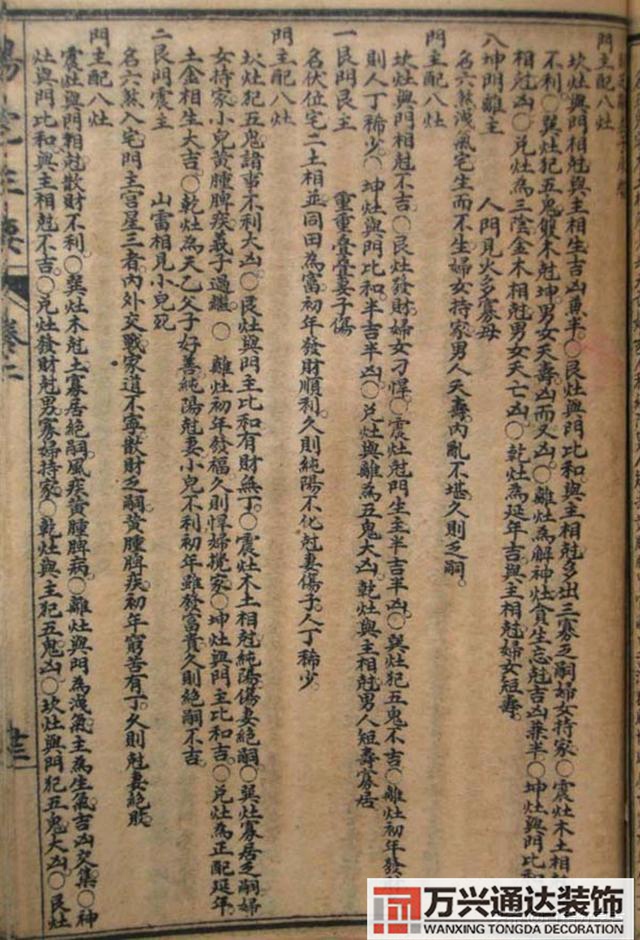 門主配八灶
坎灶與門相尅與主相生吉凶兼半〇艮灶與門比和與主相尅多出三寡乏嗣婦女持家〇震灶木土相
不利〇巽灶犯五鬼雙木尅坤男女夭壽凶而又凶〇離灶為解神灶貪生忘尅吉凶兼半〇坤灶與門比和
相尅凶〇兌灶為三陰金木相尅男女夭亡凶〇乾灶為延年吉與主相尅婦女短壽
八坤門離主　人門見火多寡母
名六煞洩氣宅生而不生婦女持家男人夭壽內亂不堪久則乏嗣
門主配八灶
坎灶與門相尅不吉〇艮灶發財婦女刁悍〇震灶尅門生主半吉半凶〇巽灶犯五鬼不吉〇離灶初年發
則人丁稀少〇坤灶與門比和半吉半凶〇兌灶與離為五鬼大凶〇乾灶與主相尅男人短壽寡居
一艮門艮主　重重疊疊妻子傷
名伏位宅二土相並同田為富初年發財順利久則純陽不化尅妻傷子人丁稀少
門主配八灶
坎灶犯五鬼諸事不利大凶〇艮灶與門主比和有財無丁〇震灶木土相尅純陽傷妻絕嗣〇巽灶寡居乏嗣婦
女持家小兒黃腫脾疾義子過繼〇離灶初年發福久則悍婦攪家〇坤灶與門主比和吉〇兌灶為正配延年
土金相生大吉〇乾灶為天乙父子好善純陽尅妻小兒不利初年雖發富貴久則絕嗣不吉
二艮門震主　山雷相見小兒死
名六煞入宅門主宮星三者內外交戰家道不寧散財乏嗣黃腫脾疾初年窮苦有丁久則尅妻絕
門主配八灶
震灶與門相尅散財不利〇巽灶木尅土寡居絕嗣風疾黃腫脾病〇離灶與門為洩氣主為生氣吉凶交集〇坤
灶與門比和與主相尅不吉〇兌灶發財尅男寡婦持家〇乾灶與主犯五鬼凶〇坎灶與門犯五鬼大凶〇艮灶
卷二
万兴通达装饰
WANXING TONGDA DECORATION